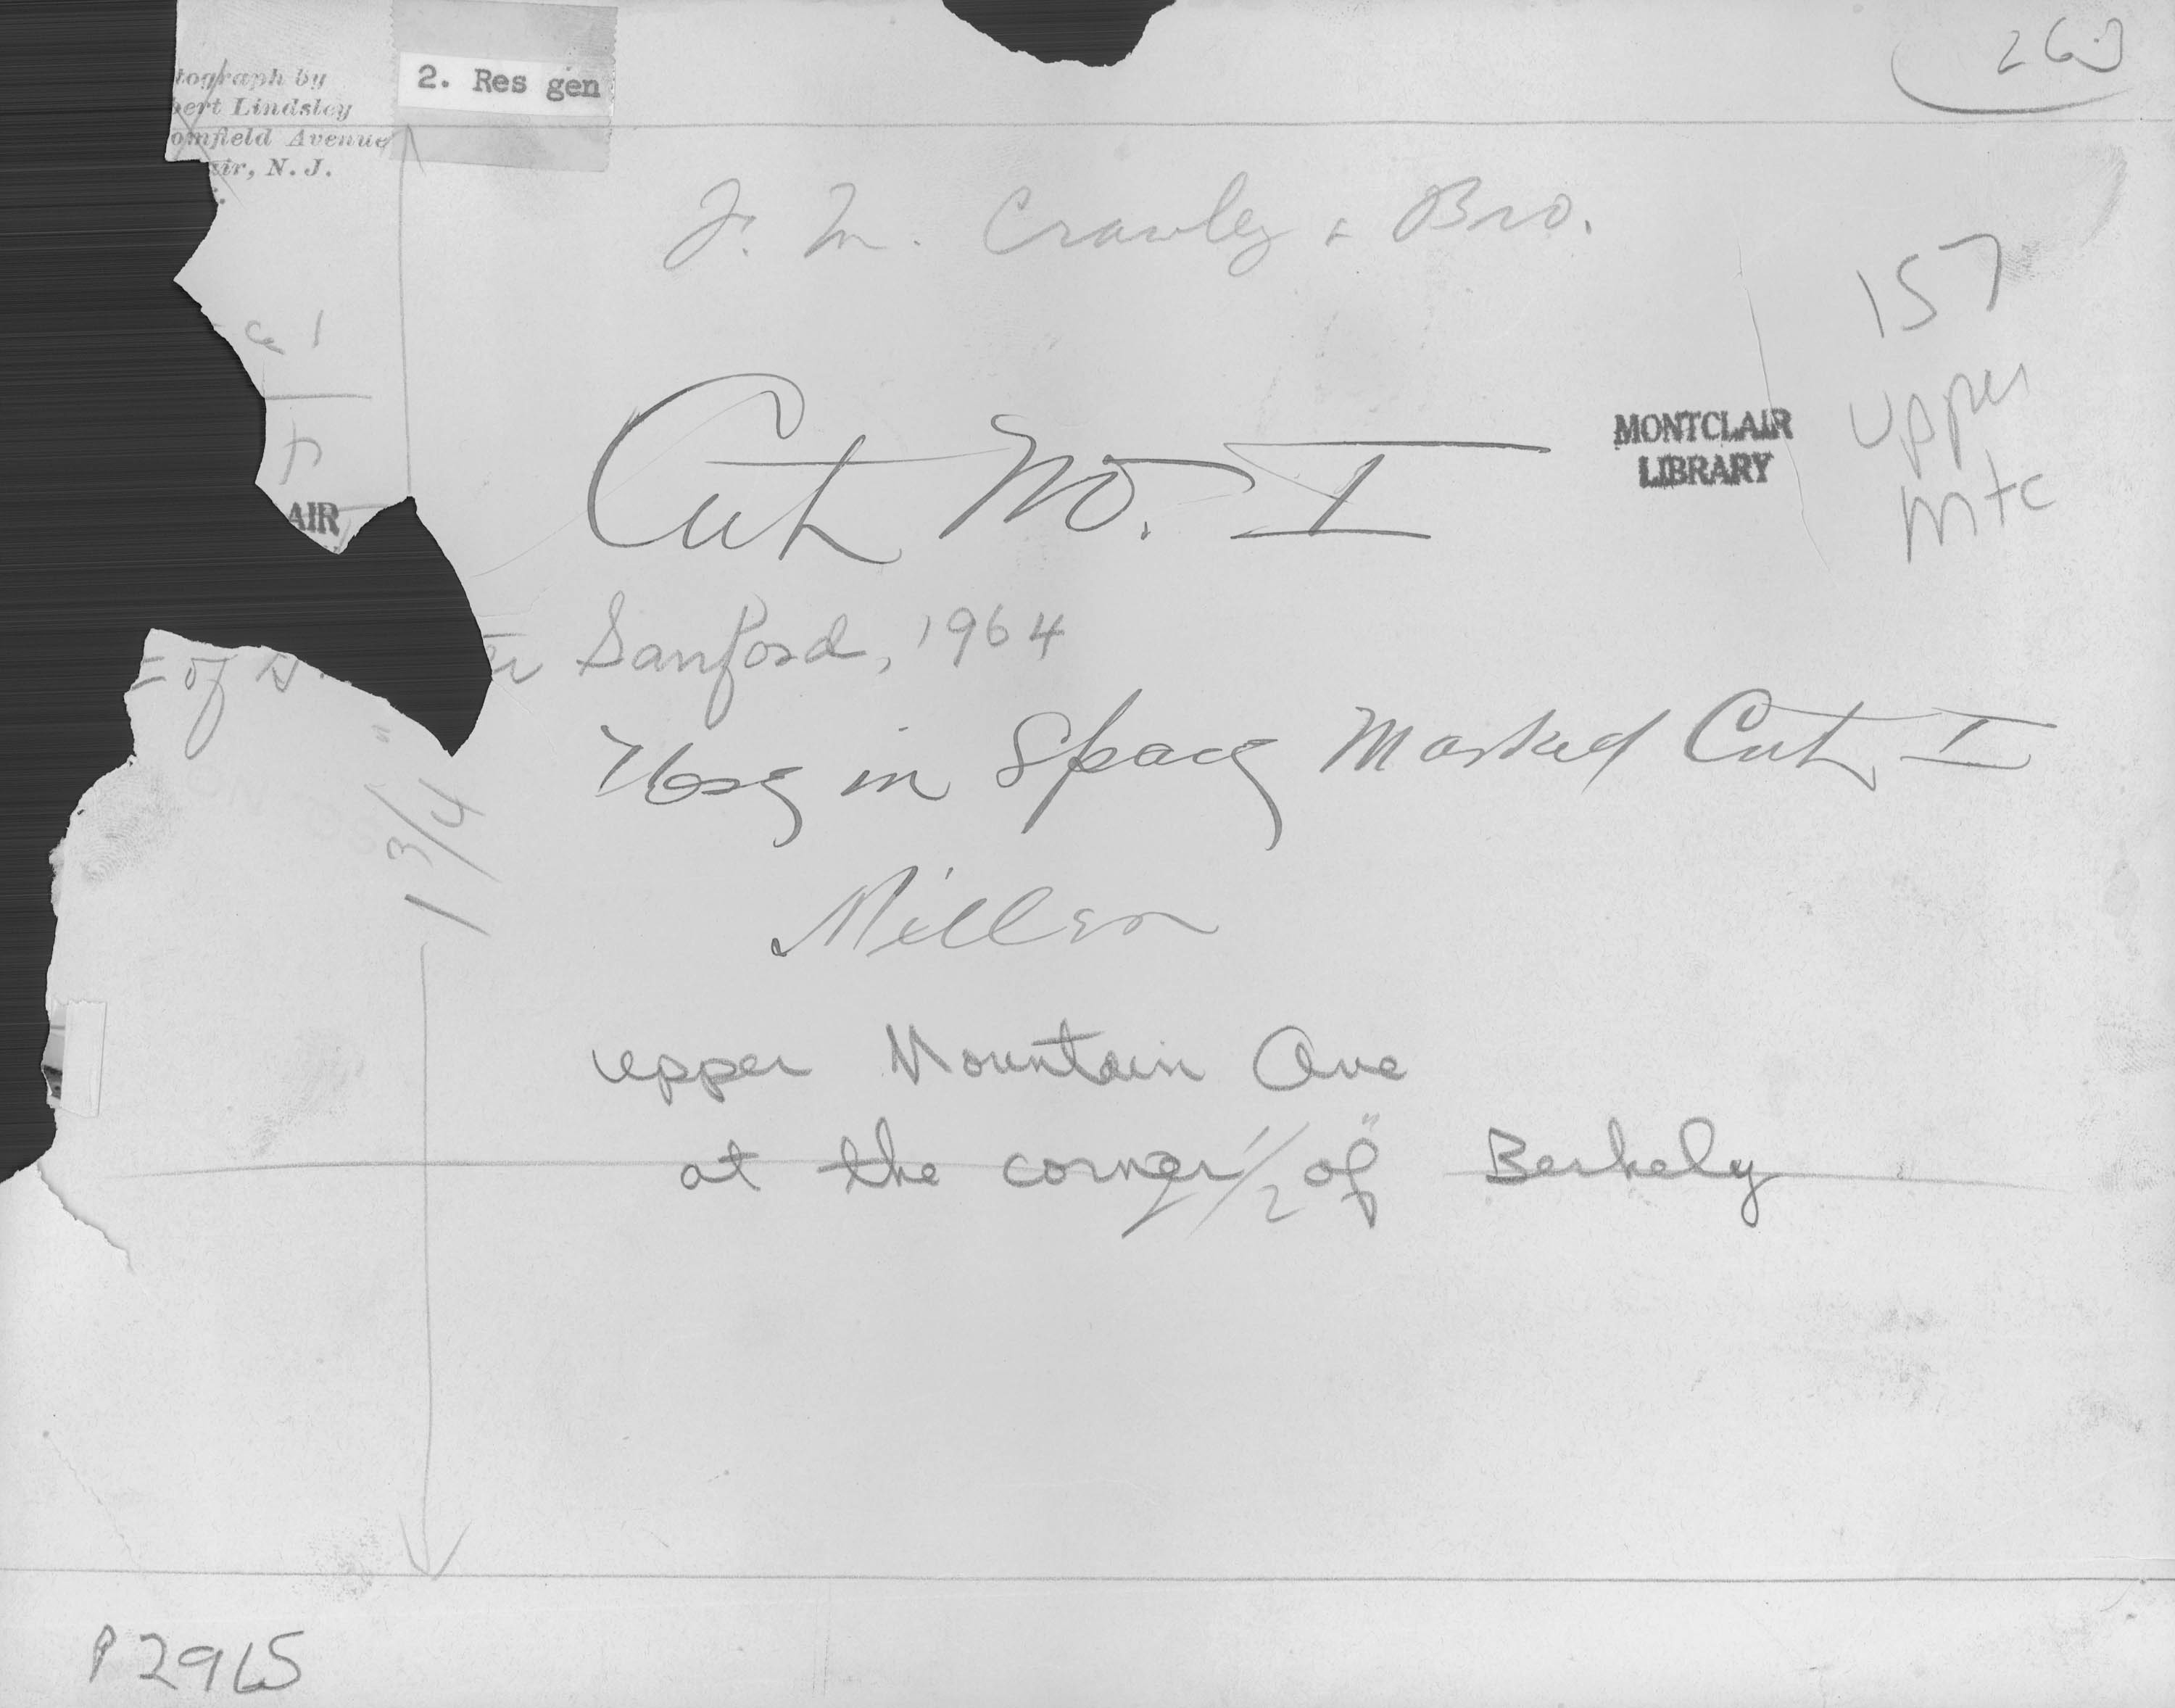 2. Res gen
tograph by
bert Lindsley
omfield Avenue
air, N. J.
F. M. Crawley & Bro.
157
upper
mtc
Cut No. I
MONTCLAIR
LIBRARY
AIR
Sanford, 1964
of
Use in Space Marked Cut I
1 3/4"
Miller
upper Mountain Ave
at the corner of Berkely
1/2"
P2965